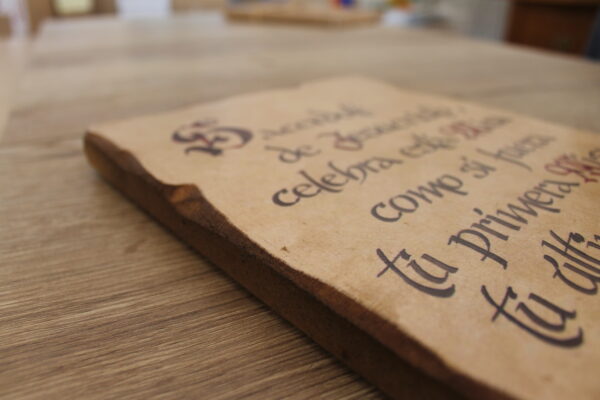 Sacerdote
de Jesucristo
celebra esta Misa
como si fuera
tu primera
tu últi